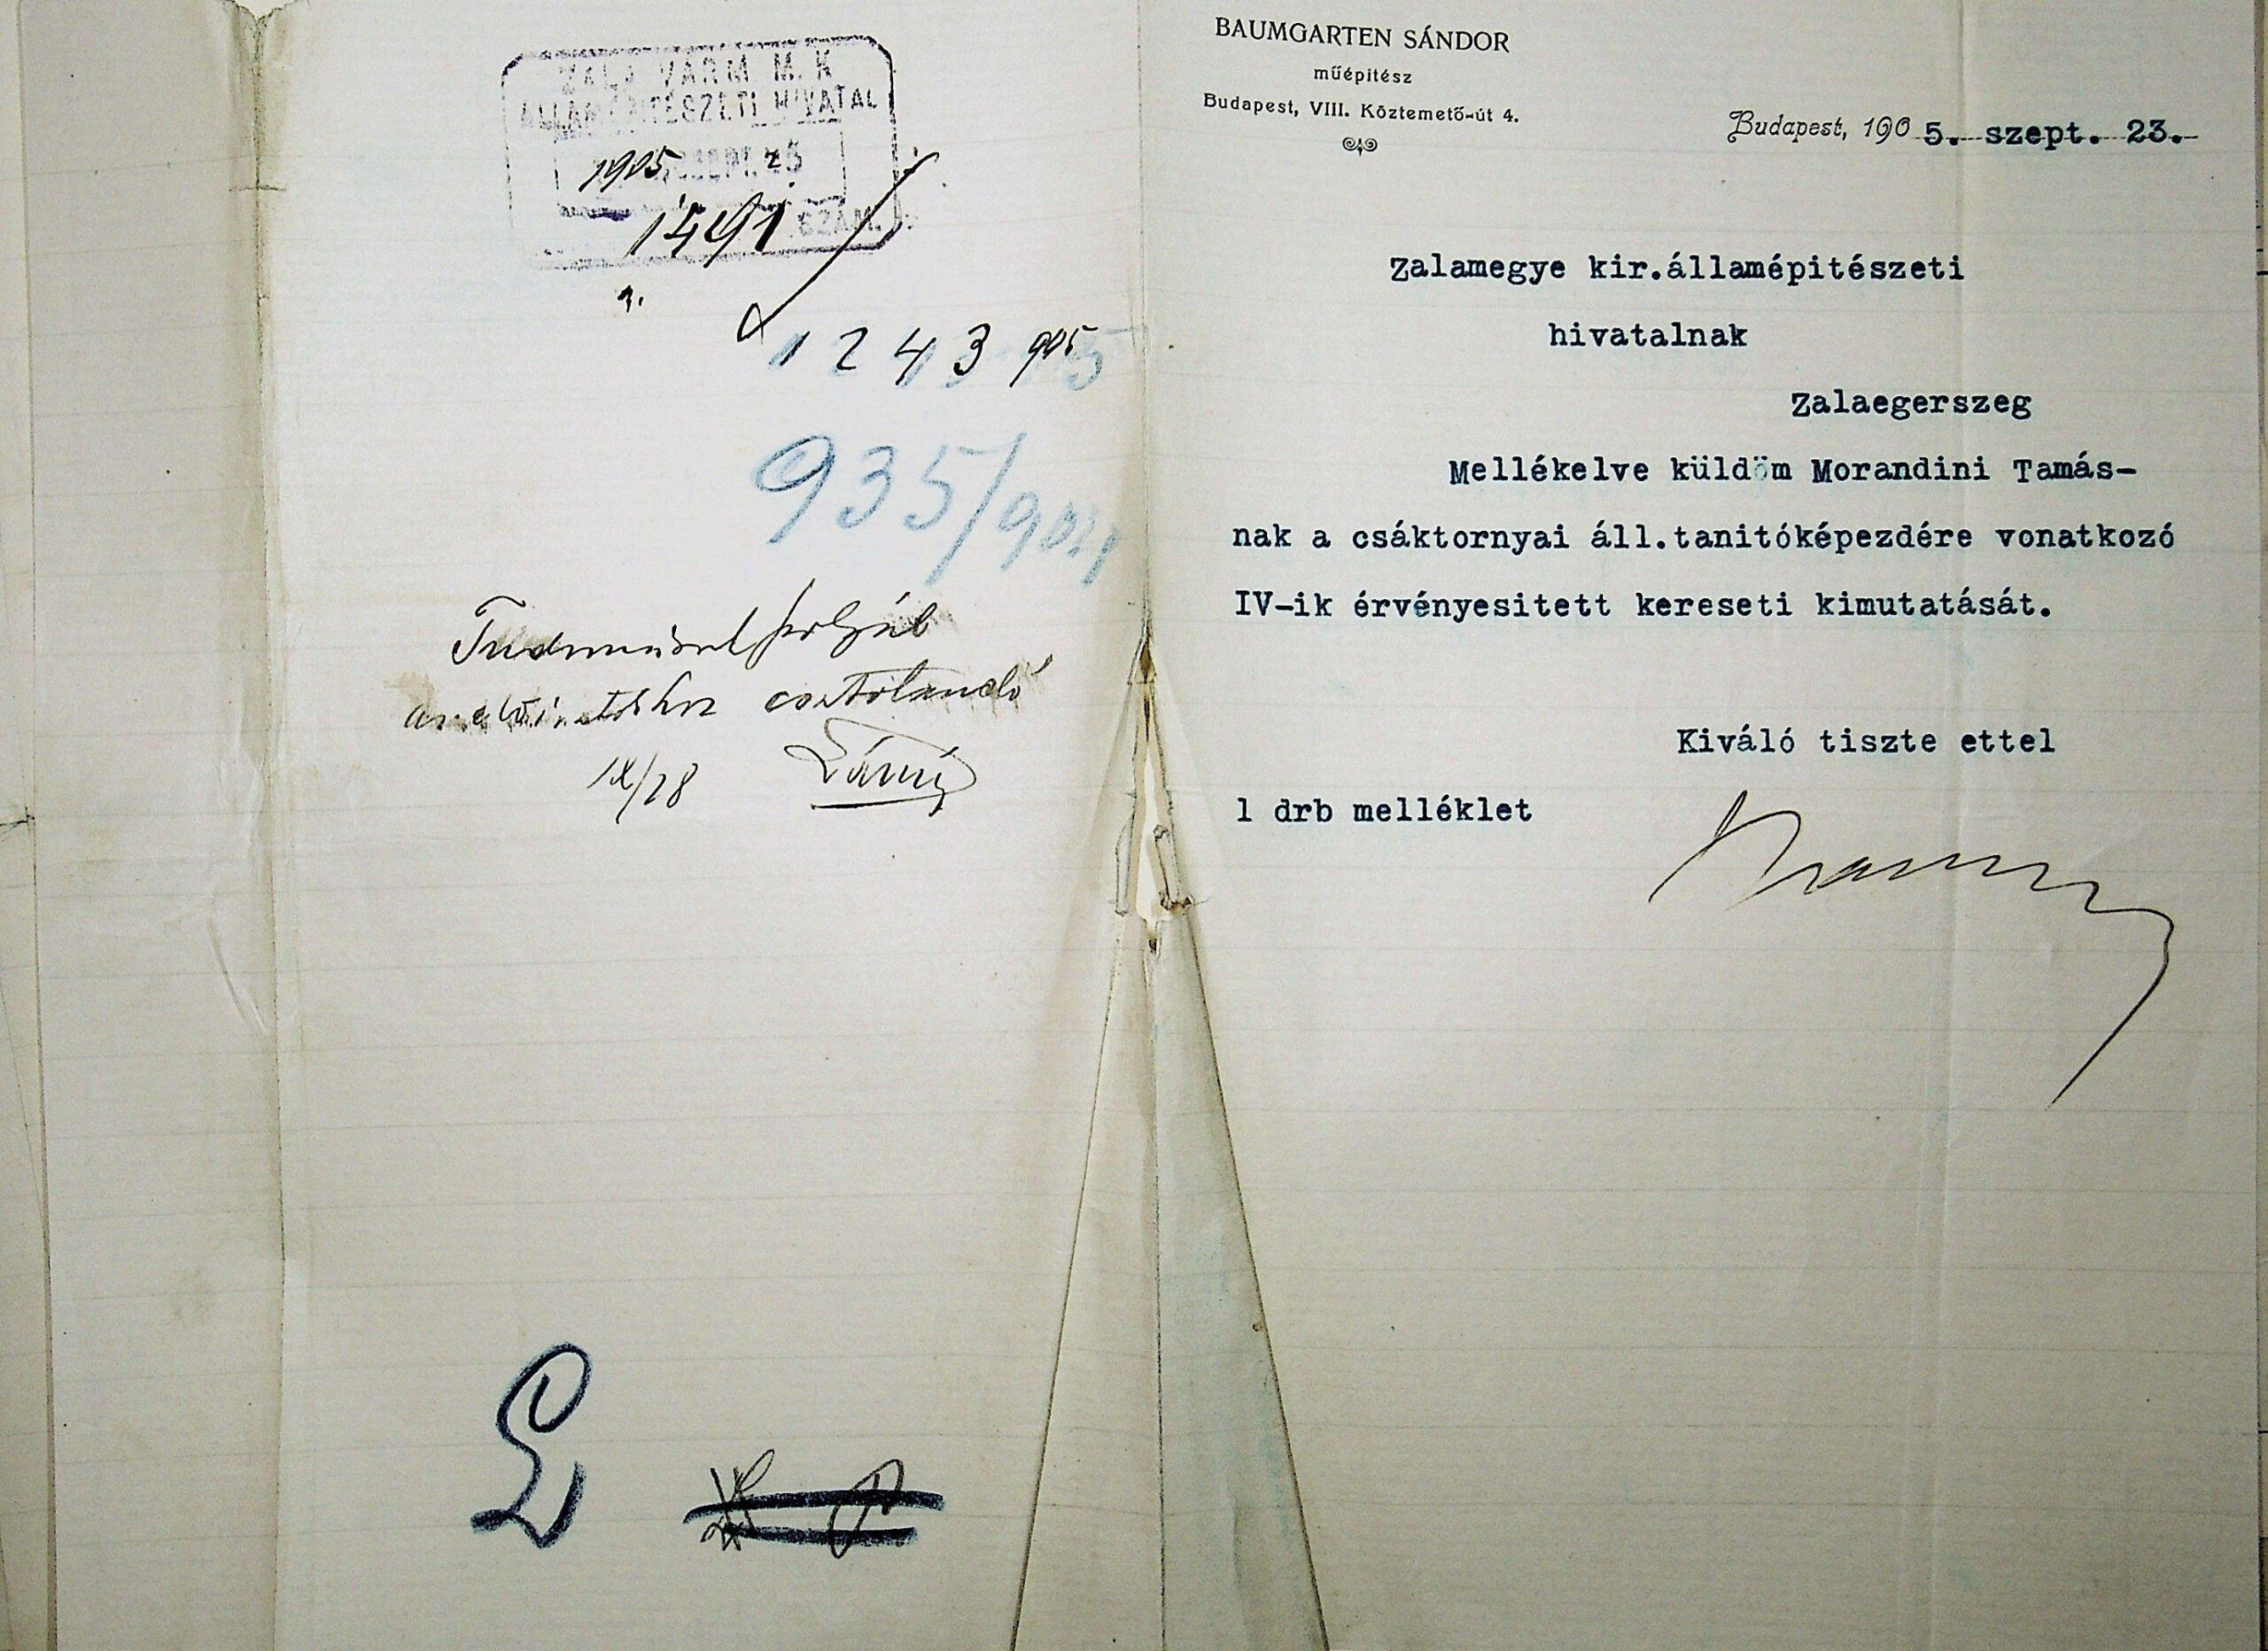 ZALA VÁRM. M. K.
ÁLLAMÉPITÉSZETI HIVATAL
1905 SZEPT. 25
1491 SZÁM.
1243 905
935/904
Tudomásul szolgál
az előiratokhoz csatolandó
IX/28
L
BAUMGARTEN SÁNDOR
műépitész
Budapest, VIII. Köztemető-út 4.
Budapest, 1905. szept. 23.
Zalamegye kir.államépitészeti
hivatalnak
Zalaegerszeg
Mellékelve küldöm Morandini Tamás-
nak a csáktornyai áll.tanitóképezdére vonatkozó
IV-ik érvényesitett kereseti kimutatását.
Kiváló tiszte ettel
1 drb melléklet